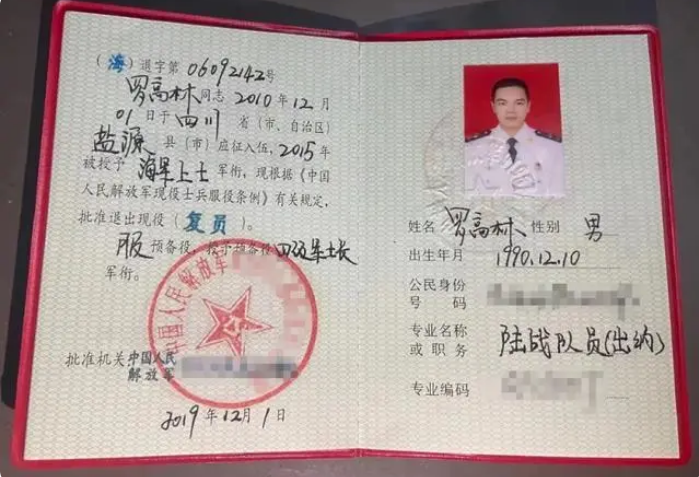 （海）通字第06092142号
罗高林同志2010年12月
01日于四川省（市、自治区）
盐源县（市）应征入伍，2015年
被授予海军上士军衔，现根据《中国
人民解放军现役士兵服役条例》有关规定，
批准退出现役（复员）。
服预备役，授予预备役四级军士长
军衔。
中国人民解放军
批准机关 中国人民
解放军
2019年12月1日
姓名 罗高林 性别 男
出生年月 1990.12.10
公民身份
号码
专业名称
或职务 陆战队员(出纳)
专业编码